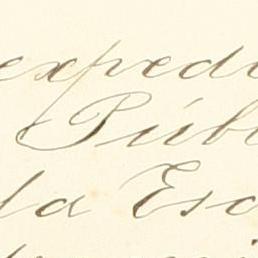 expedi
Públ
la Esc